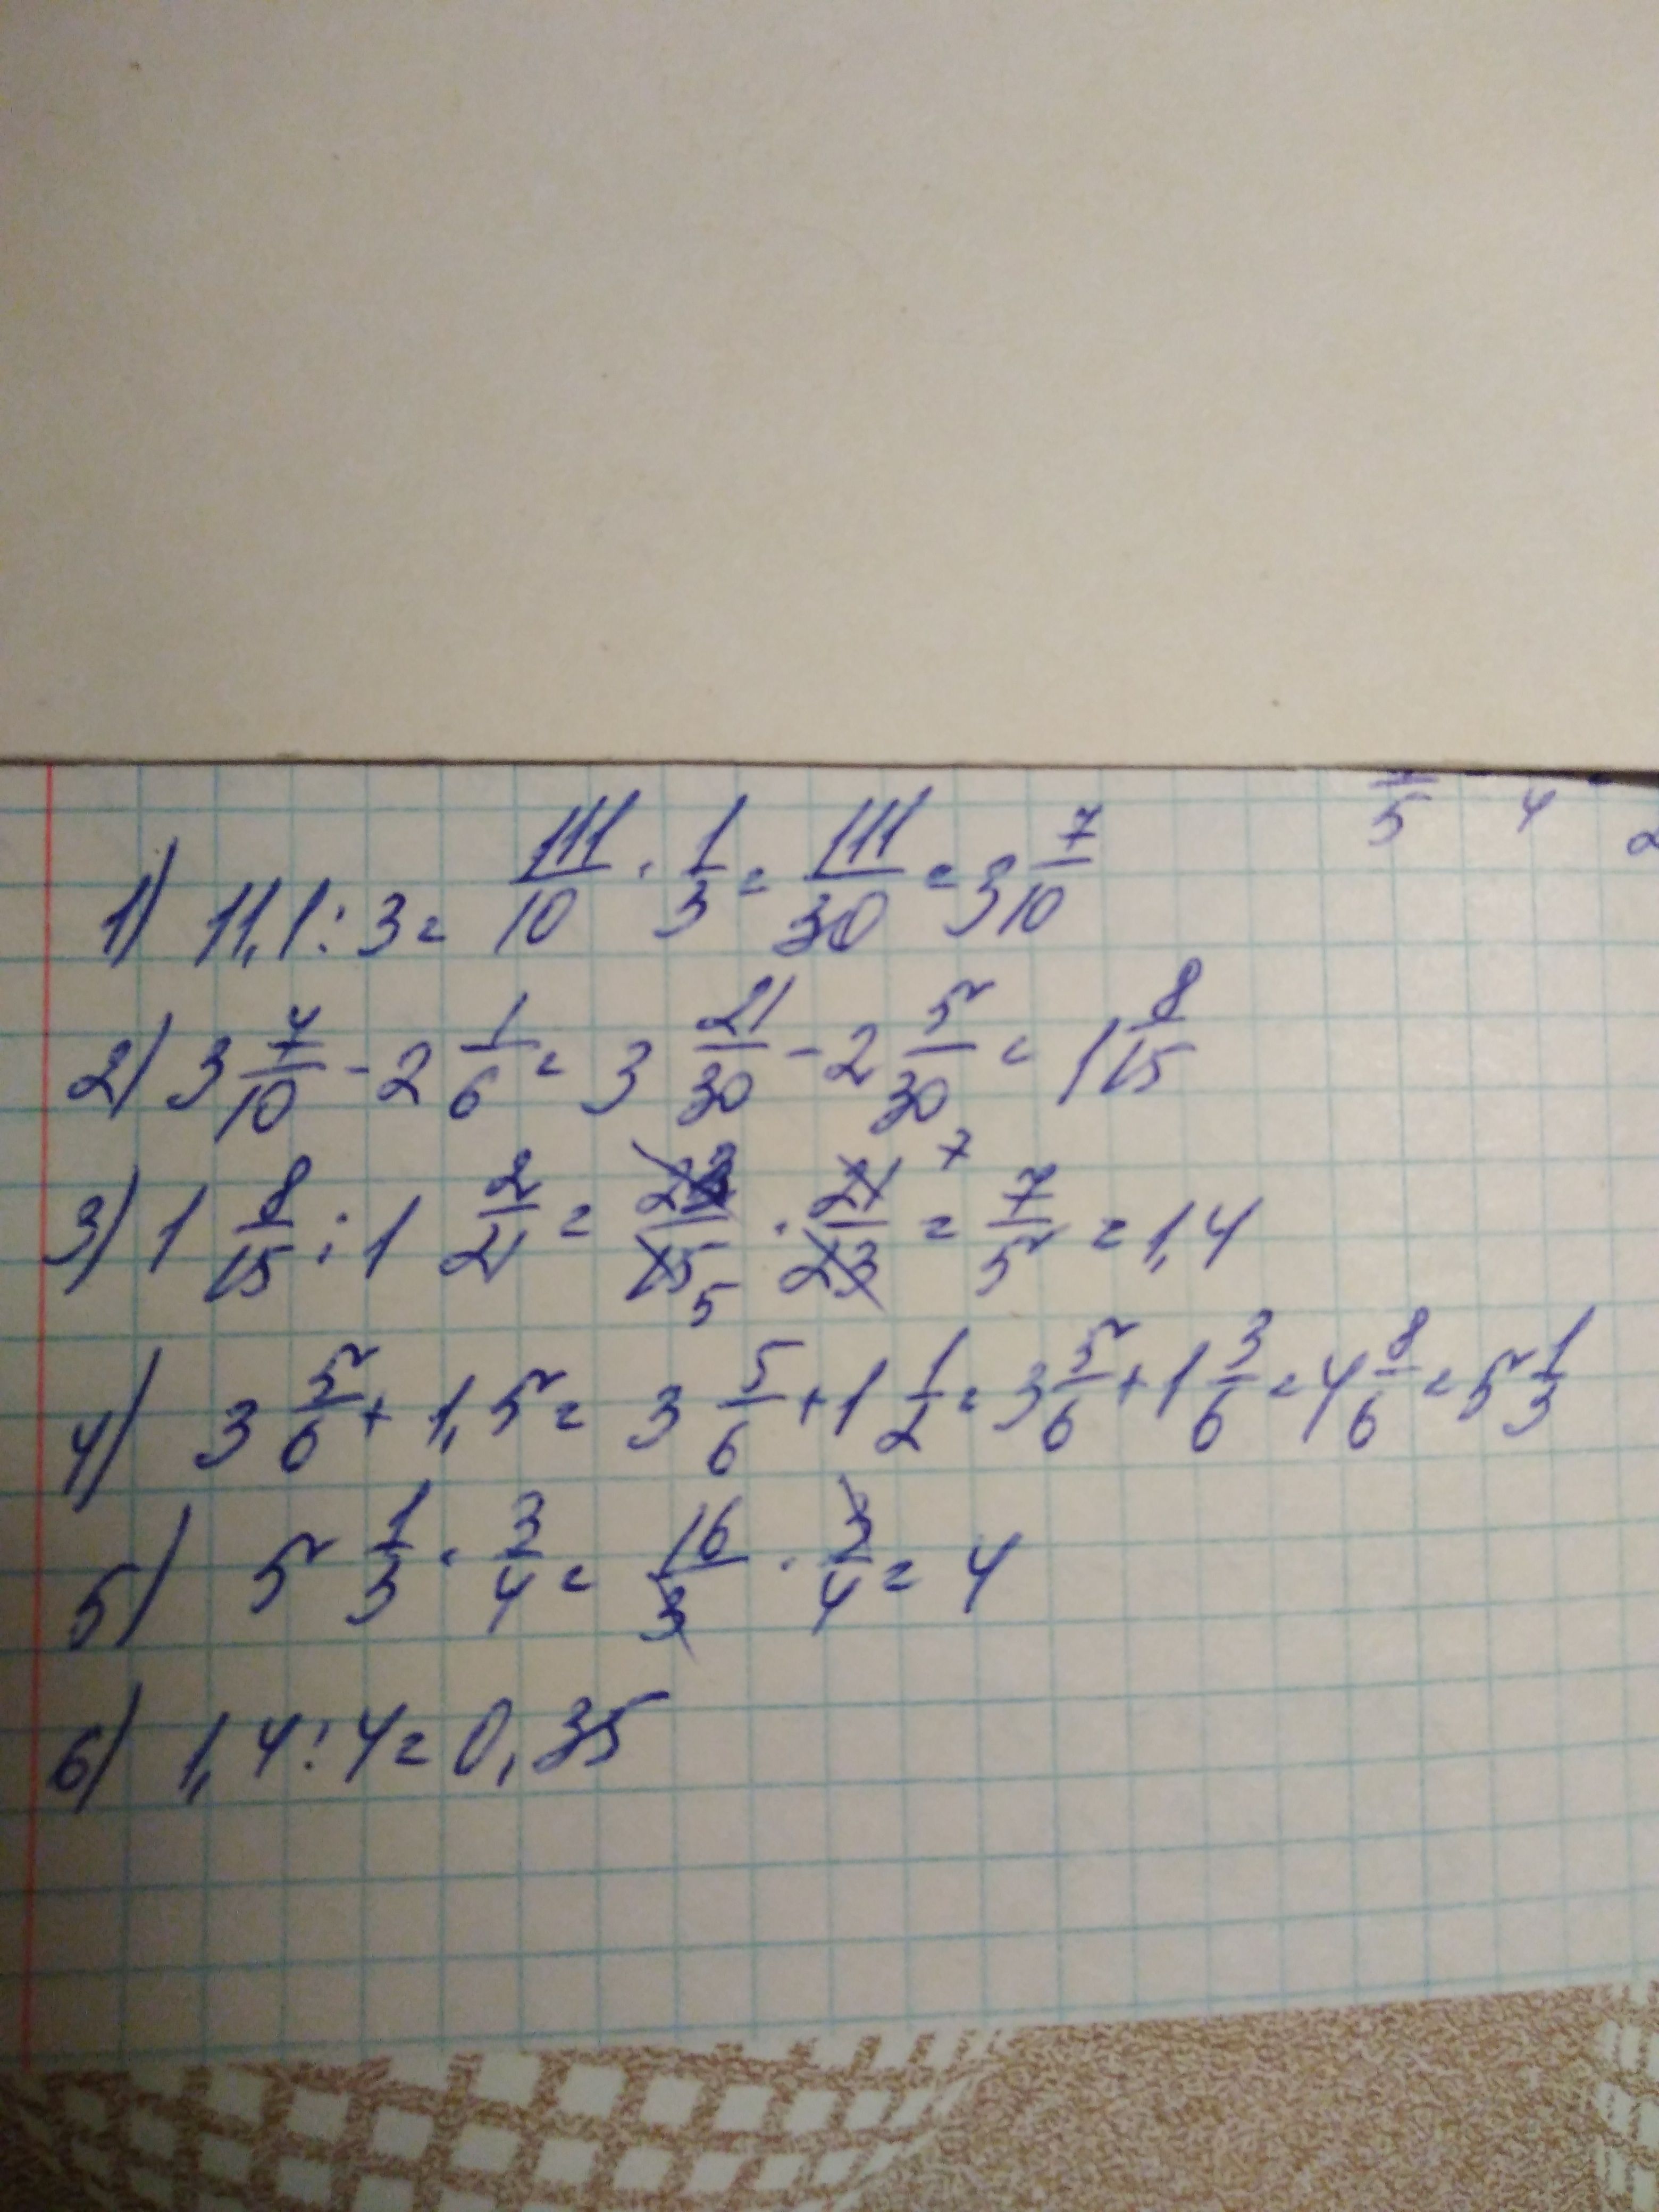 5 4
1) 11,1 : 3 = 111/10 · 1/3 = 111/30 = 3 7/10
2) 3 7/10 - 2 1/6 = 3 21/30 - 2 5/30 = 1 8/15
3) 1 8/15 : 1 2/21 = 23/15 5 · 21/23 7 = 7/5 = 1,4
4) 3 5/6 + 1,5 = 3 5/6 + 1 1/2 = 3 5/6 + 1 3/6 = 4 8/6 = 5 1/3
5) 5 1/3 · 3/4 = 16/3 · 3/4 = 4
6) 1,4 : 4 = 0,35